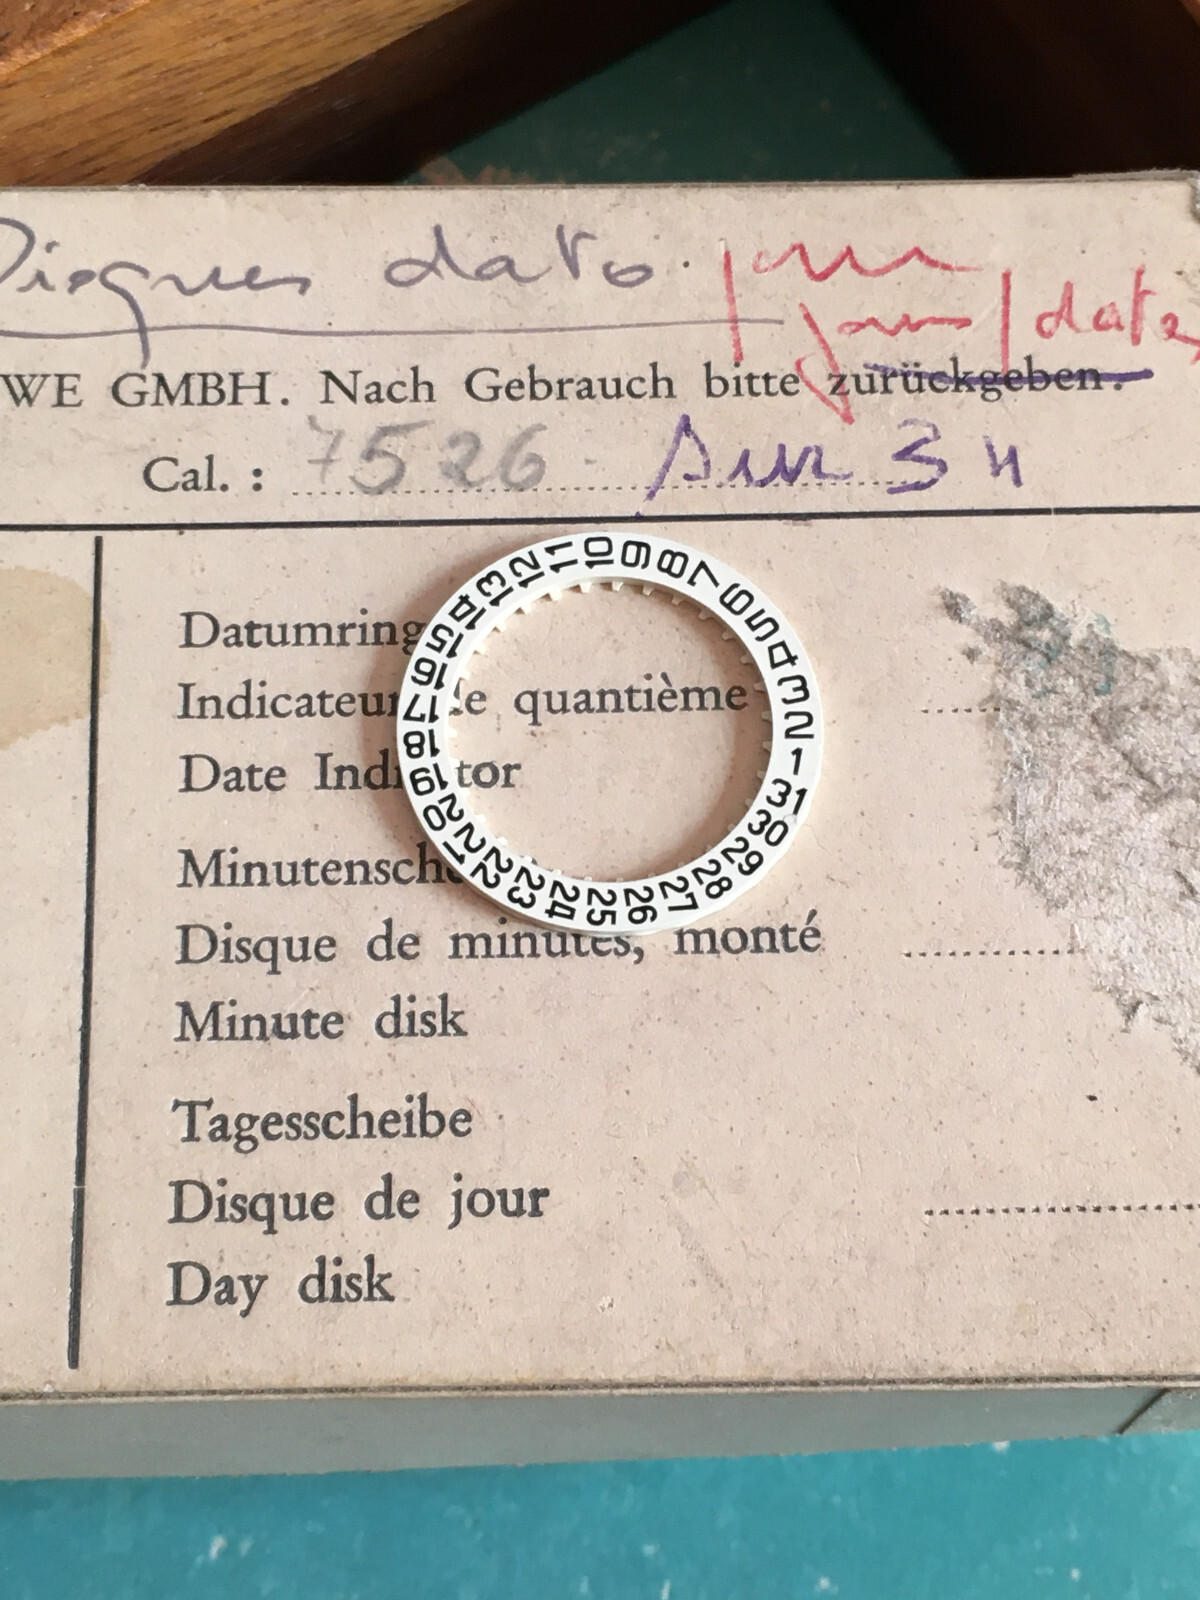 Disques dato jour
jours/date
WE GMBH. Nach Gebrauch bitte zurückgeben.
Cal. : 7526 sur 3 H
Datumring
Indicateur de quantième
Date Indicator
Disque de minutes, monté
Minute disk
Tagesscheibe
Disque de jour
Day disk
1 2 3 4 5 6 7 8 9 10 11 12 13 14 15 16 17 18 19 20 21 22 23 24 25 26 27 28 29 30 31